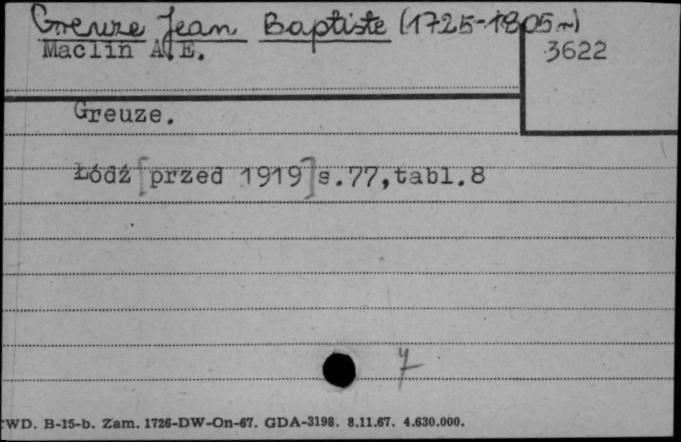 Greuze Jean Baptiste (1725-1805 r.)
Maclin A.E.
3622
Greuze.
Łódź [przed 1919] s.77,tabl.8
7
CWD. B-15-b. Zam. 1726-DW-On-67. GDA-3198. 8.11.67. 4.630.000.